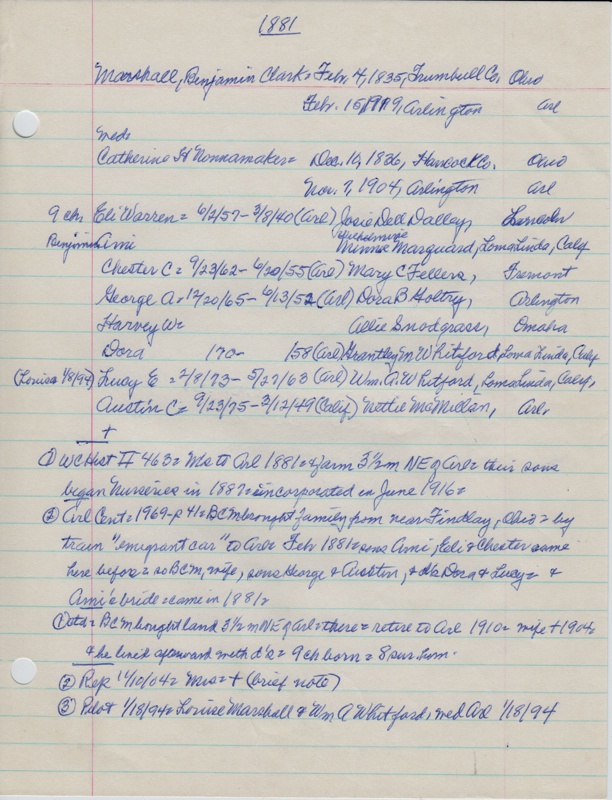 1881
Marshall, Benjamin Clark = Feb. 4, 1835, Trumbull Co. Ohio
Feb. 15, 1919, Arlington Arl
med.
Catherine H Nonnamaker = Dec. 16, 1836, Hancock Co. Ohio
Nov. 7, 1904, Arlington Arl
9 ch. Eli Warren = 6/2/57 - 3/8/40 (Arl) Josie Dell Dalley, Lincoln
Benjamin Ami Wilhelmine Minnie Marquard, Loma Linda, Calif
Chester C = 9/23/62 - 6/20/55 (Arl) Mary C Fellers, Fremont
George A = 12/20/65 - 6/13/52 (Arl) Dora B Holtry, Arlington
Harvey W = Allie Snodgrass, Omaha
Dora /70 - /58 (Arl) Grantley M Whitford, Loma Linda, Calif
(Louise 1/8/94) Lucy E = 2/8/73 - 5/27/63 (Arl) Wm. A. Whitford, Loma Linda, Calif,
Austin C = 9/23/75 - 3/12/49 (Calif) Nettie McMillan, Arl.
+
① WC Hist II 463 = Ms to Arl 1881 = & farm 3 1/2 m NE of Arl = their sons
began Nurseries in 1887 = incorporated in June 1916 =
② Arl Cent = 1969 - p 41 = BCM brought family from near Findlay, Ohio = by
train "emigrant car" to Arl = Feb 1881 = sons Ami, Eli & Chester came
here before = so BCM, wife, sons George & Austin, & ds Dora & Lucy = &
Ami's bride = came in 1881 =
① = BCM bought land 3 1/2 m NE of Arl = there = retire to Arl 1910 = wife + 1904 =
& he lived afterward with d's = 9 ch born = 8 sur. him.
② Rep 11/10/04 = Mrs = + (brief note)
③ Pilot 1/18/94 = Louise Marshall & Wm A Whitford, med Arl 1/18/94